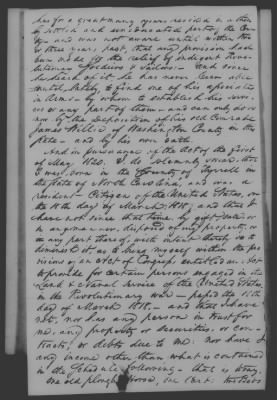 has for a great many years resided in a thin
ly settled and uninformed part of the Coun
ty - and was not aware until within two
or three years past, that any provision had
been made for the relief of indigent Revo-
lutionary Soldiers & Sailors - And since
he heard of it he has never been able
until lately to find one of his associates
in Arms - by whom to establish his servi-
ces or any part of them - and can only do so
now by the deposition of his old Comrade
James Willis of Washington County in this
State - and by his own oath
And in pursuance of the Act of the first
of May, 1820. I do solemnly swear that
I was born in the County of Tyrrell in
the State of North Carolina, and was a
resident Citizen of the United States, on
the 18th day of March 1818; and that I
have not since that time, by gift, sale, or
in any manner, disposed of my property, or
any part thereof, with intent thereby so to
diminish it, as to bring myself within the pro
visions of an Act of Congress entitled an "Act
to provide for certain persons engaged in the
Land & Naval Service of the United States
in the Revolutionary War - passed the 18th
day of March 1818 - and that I have
not, nor has any person in trust for
me, any property or securities, or con-
tracts, or debts due to me: nor have I
any income other than what is contained
in the Schedule following - that is to say,
One old plough Horse, six Cows: